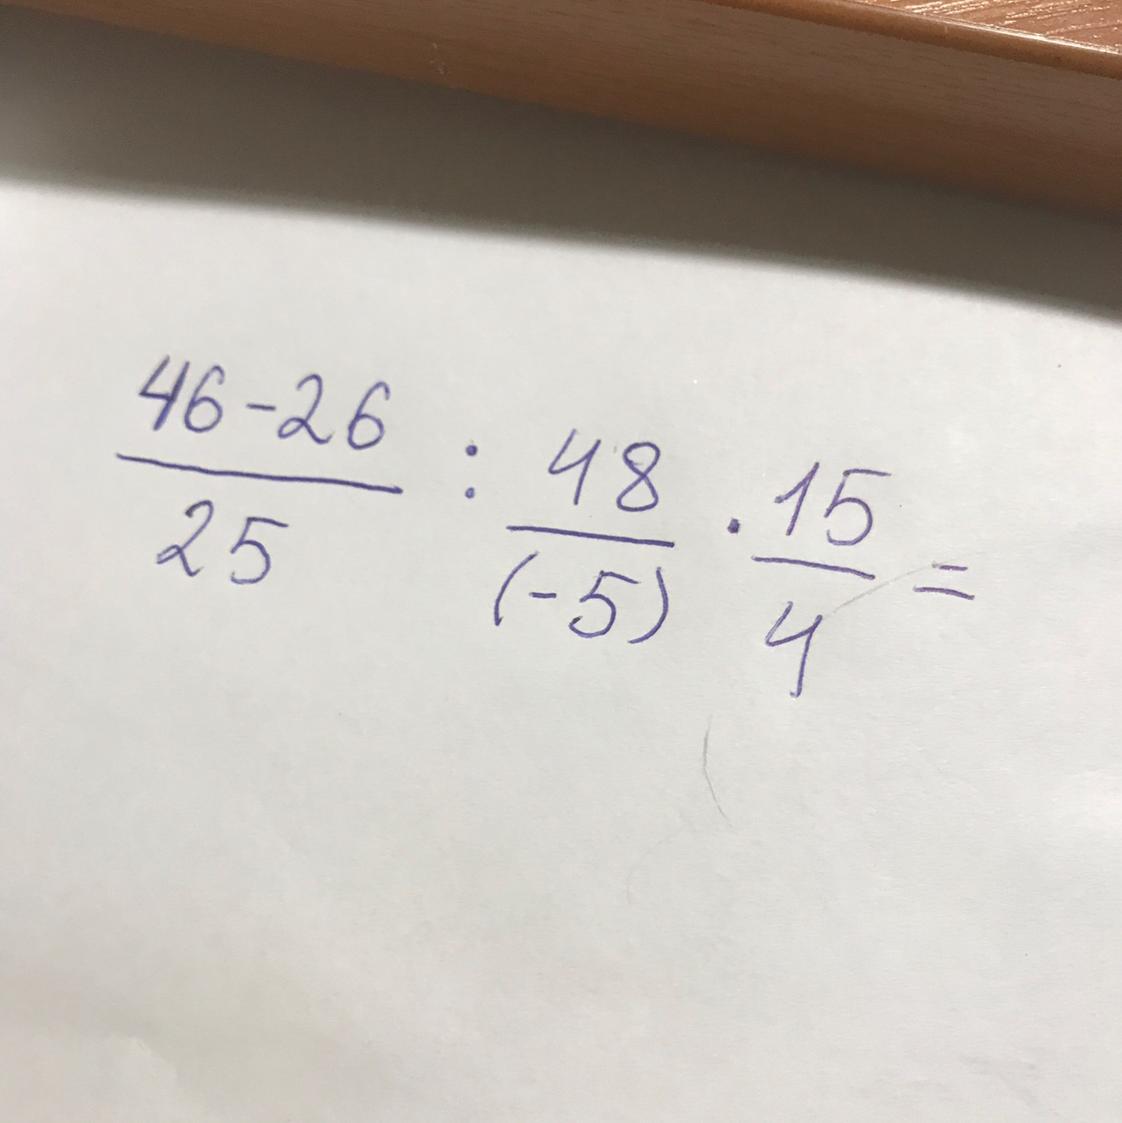 46-26 / 25 : 48 / (-5) · 15 / 4 =